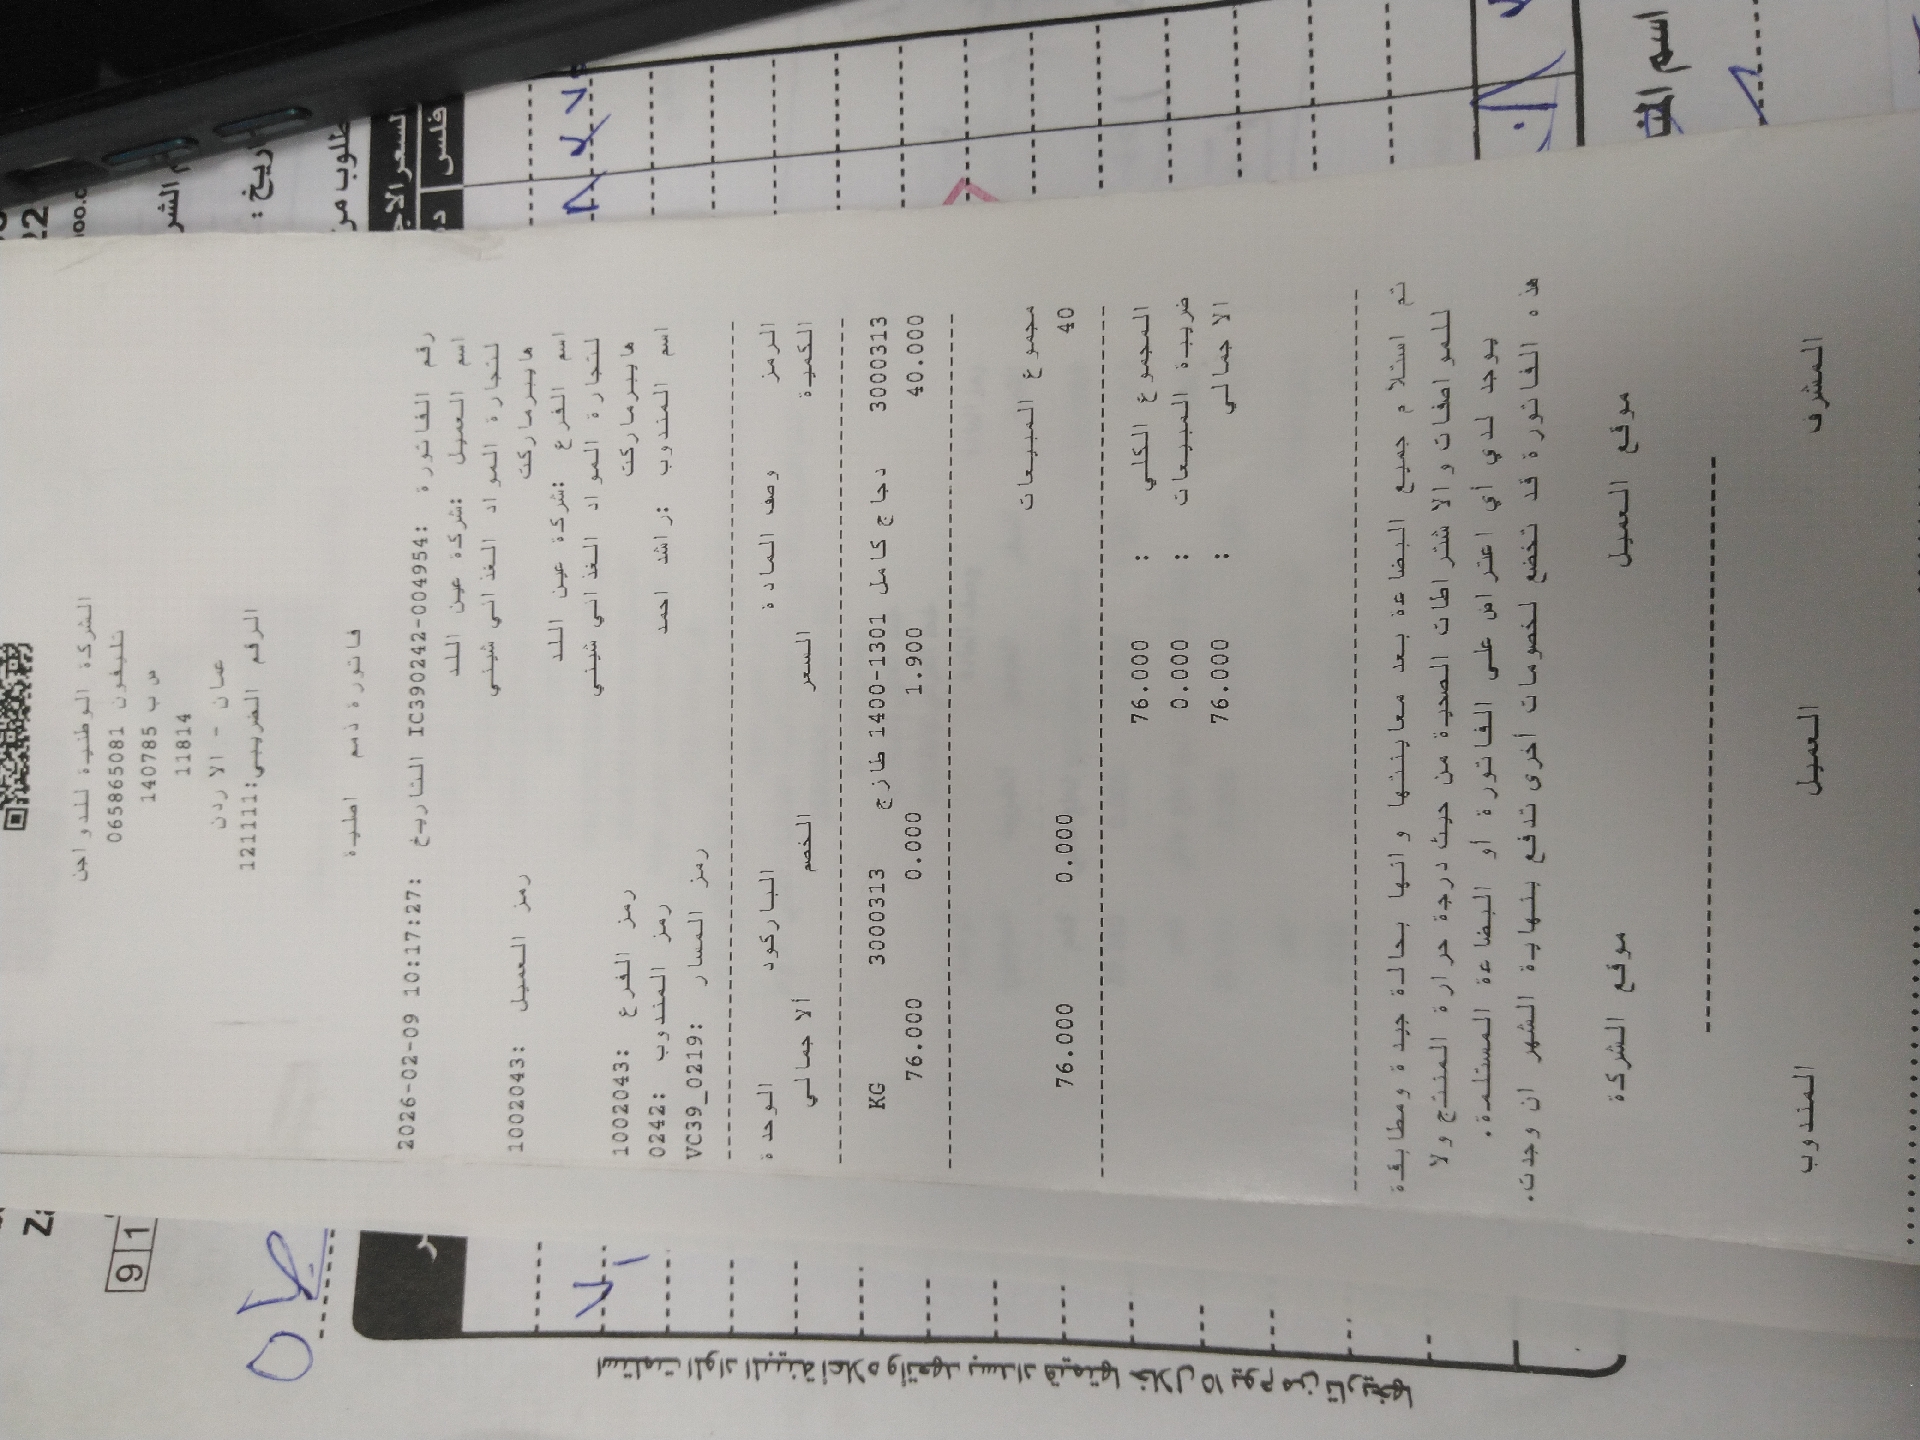 الشركة الوطنية للدواجن
تليفون 065865081
ص ب 140785
11814
عمان - الاردن
الرقم الضريبي:121111
فاتورة ذمم اصلية
رقم الفاتورة :IC390242-004954 التاريخ :2026-02-09 10:17:27
اسم العميل :شركة عين اللد
لتجارة المواد الغذائي شيني
هايبرماركت رمز العميل :1002043
اسم الفرع :شركة عين اللد
لتجارة المواد الغذائي شيني
هايبرماركت رمز الفرع :1002043
اسم المندوب :راشد احمد رمز المندوب :0242
رمز المسار :VC39_0219
الرمز وصف المادة الباركود الوحدة
الكمية السعر الخصم ألاجمالي
3000313 دجاج كامل 1301-1400 طازج 3000313 KG
40.000 1.900 0.000 76.000
مجموع المبيعات
40 0.000 76.000
المجموع الكلي : 76.000
ضريبة المبيعات : 0.000
الاجمالي : 76.000
تم استلام جميع البضاعة بعد معاينتها وانها بحالة جيدة ومطابقة
للمواصفات والاشتراطات الصحية من حيث درجة حرارة المنتج ولا
يوجد لدي أي اعتراض على الفاتورة أو البضاعة المستلمة.
هذه الفاتورة قد تخضع لخصومات أخرى تدفع بنهاية الشهر ان وجدت.
موقع العميل موقع الشركة
المشرف العميل المندوب
استلمت المواد المبينة أعلاه وأتعهد بسداد قيمتها خلال ١٥ يوم من تاريخها
22
فلس
9 1